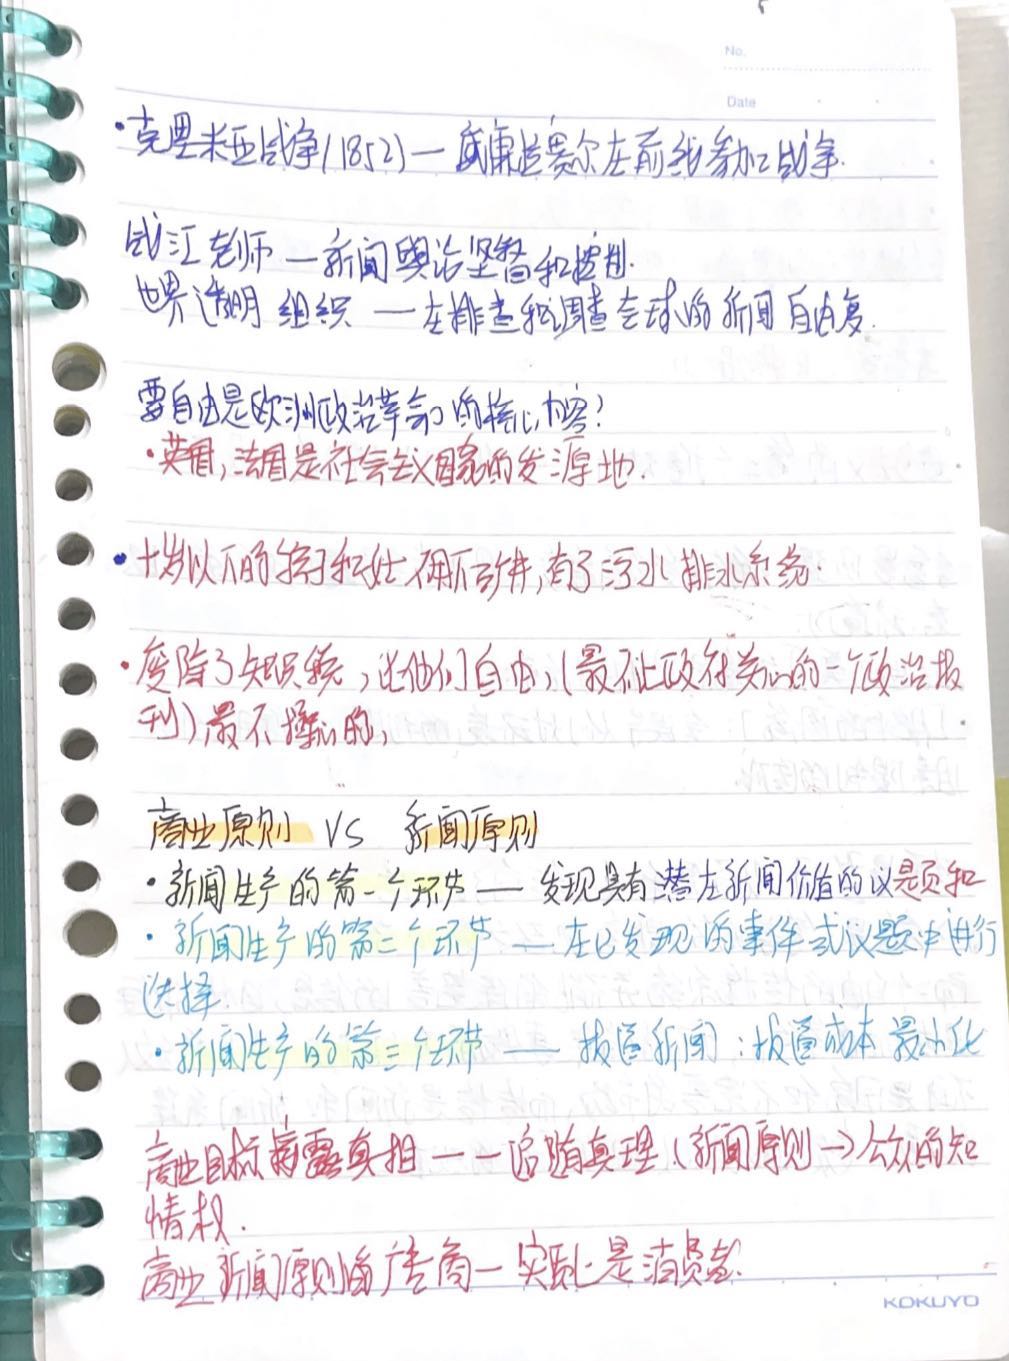 No.
Date
·克里米亚战争(1852)一威廉道赛尔在前线参加战争.
战江老师 一新闻舆论坚督和控制.
世界透明 组织 一在排查和调查全球的新闻自由度.
要自由是欧洲政治革命的核心内容?
·英国,法国是社会主义国家的发源地.
·十岁以下的孩子和妇不用下矿井,有了污水排水系统.
·废除了知识税,让他们自由,(最不让政府关心的一个政治报
刊)最不操心的,
商业原则 VS 新闻原则
·新闻生产的第一个环节 — 发现具有潜在新闻价值的议题和
·新闻生产的第二个环节 — 在已发现的事件或议题中进行
选择.
·新闻生产的第三个环节 — 报道新闻:报道成本最小化
商业目标揭露真相 一一追随真理(新闻原则→公众的知
情权.
商业新闻原则 广告商一实际上是消费者.
KOKUYO